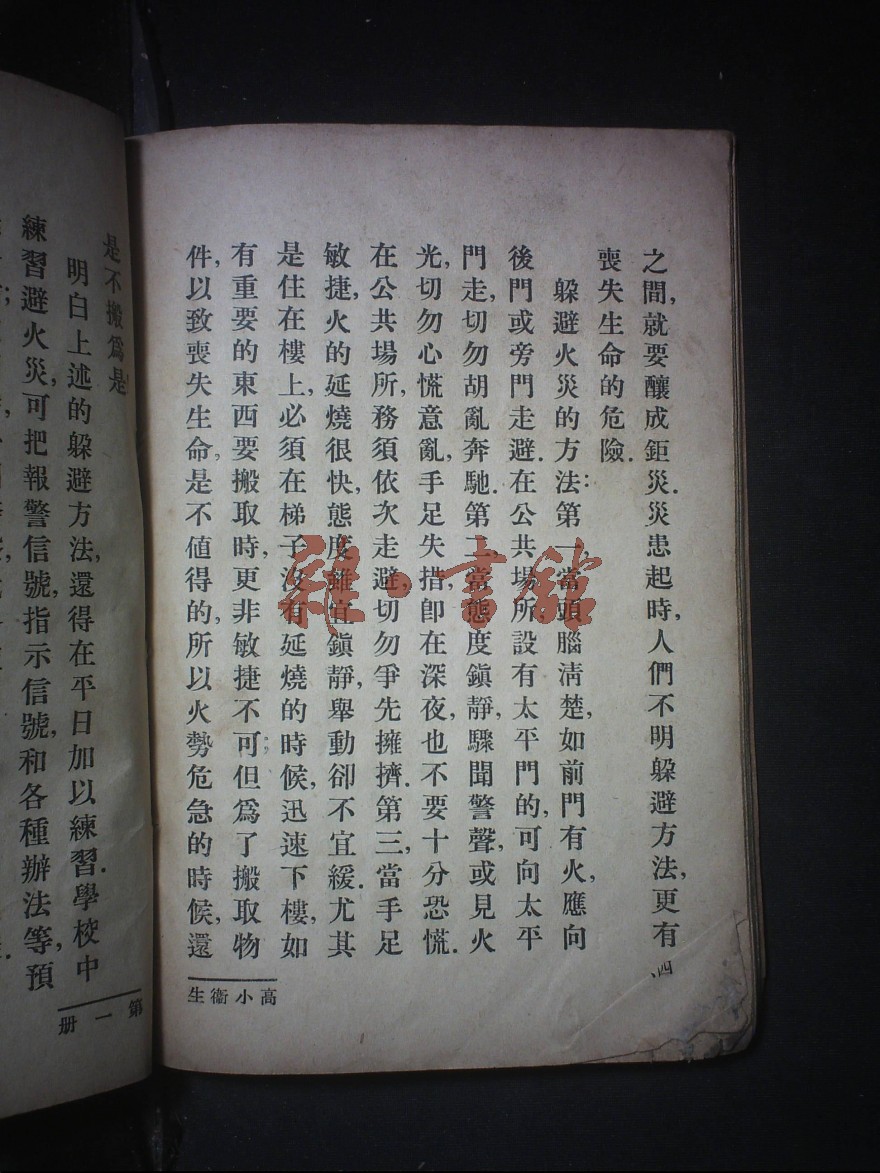 之間,就要釀成鉅災.災患起時,人們不明躲避方法,更有
喪失生命的危險.
躲避火災的方法:第一當頭腦淸楚,如前門有火,應向
後門或旁門走避.在公共場所,設有太平門的,可向太平
門走,切勿胡亂奔馳.第二,當態度鎭靜,驟聞警聲,或見火
光,切勿心慌意亂,手足失措,卽在深夜,也不要十分恐慌.
在公共場所,務須依次走避,切勿爭先擁擠.第三,當手足
敏捷,火的延燒很快,態度雖宜鎭靜,舉動卻不宜緩.尤其
是住在樓上,必須在梯子沒有延燒的時候,迅速下樓,如
有重要的東西要搬取時,更非敏捷不可;但爲了搬取物
件,以致喪失生命,是不値得的,所以火勢危急的時候,還
四
高小衞生
是不搬爲是.
明白上述的躲避方法,還得在平日加以練習.學校中
練習避火災,可把報警信號,指示信號,和各種辦法等,預
第一册
雜·書館